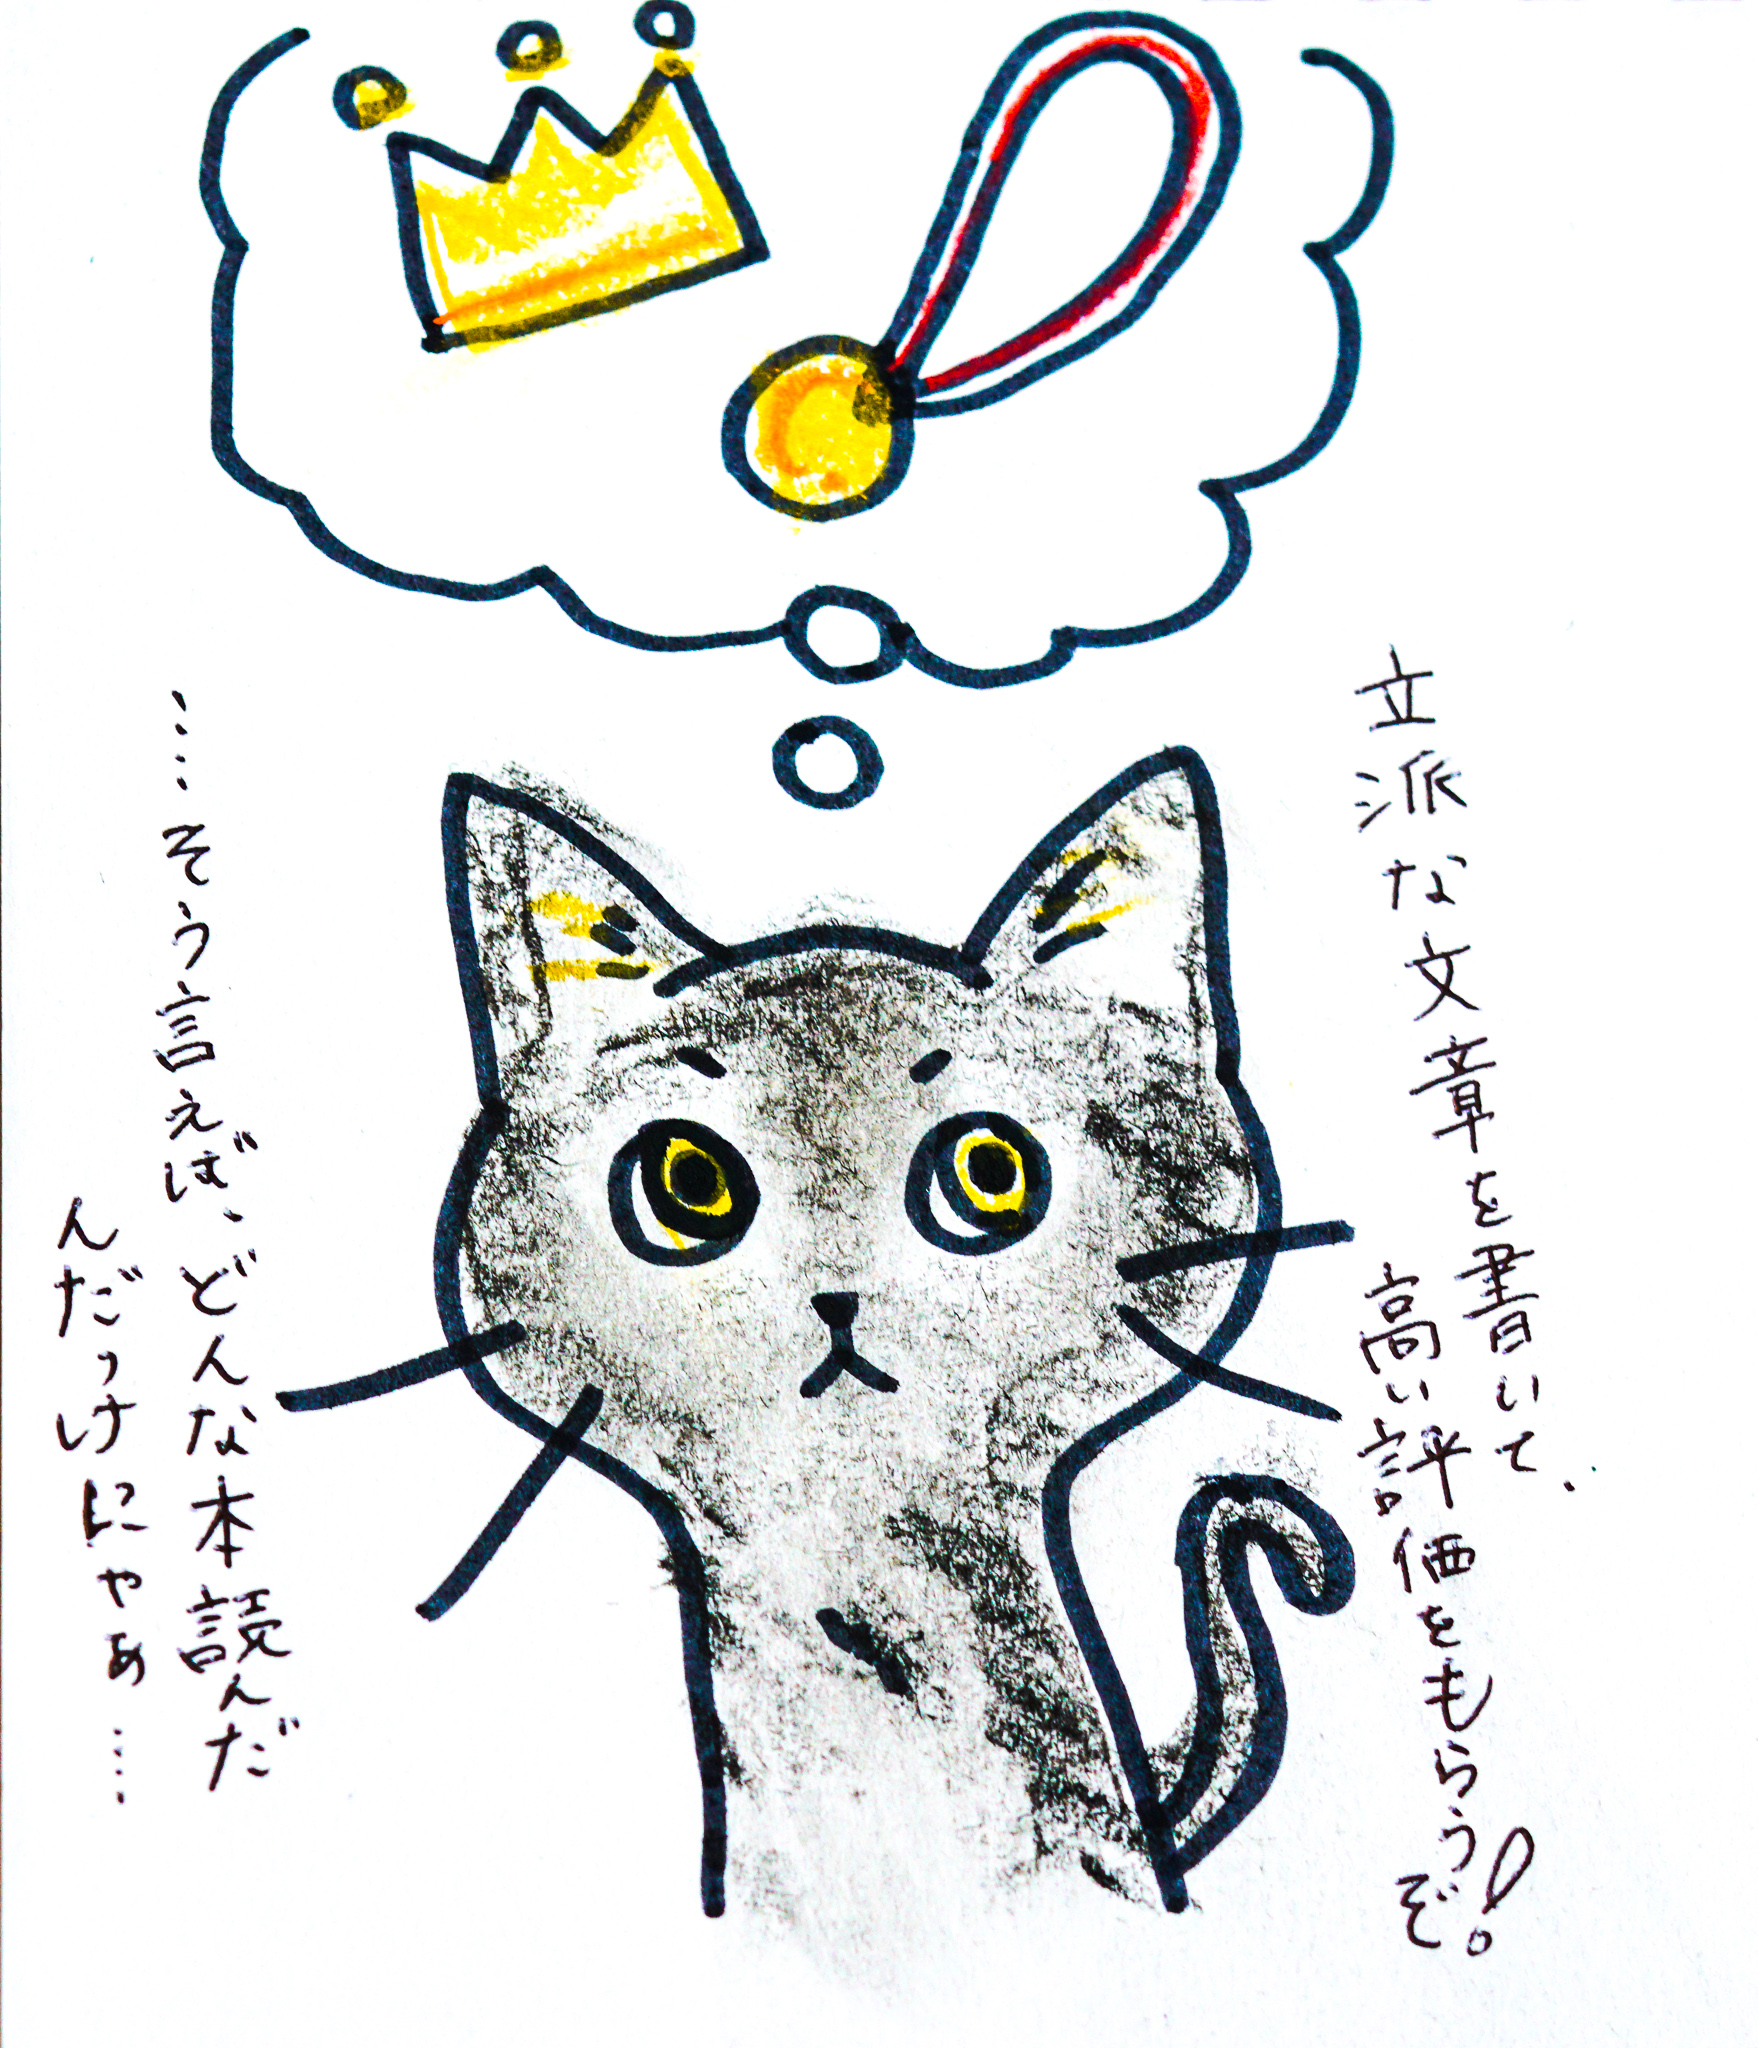 立派な文章を書いて、
高い評価をもらうぞ!
……そう言えば、どんな本読んだ
んだっけにゃぁ……